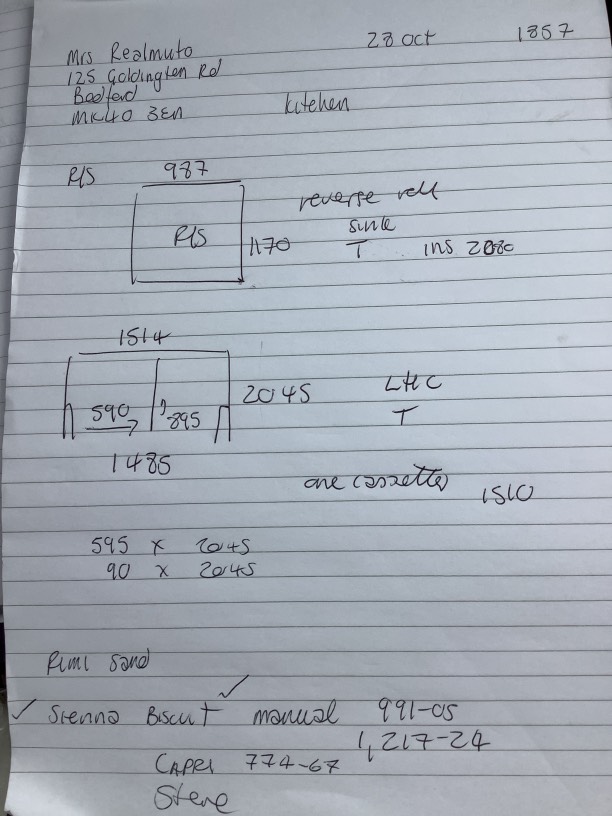 Mrs Realmuto 28 Oct 1857
125 Goldington Rd
Bedford
MK40 3EN kitchen
R/S 987
reverse roll
R/S sink
1170 T ins 2080
1514
590 895 2045 LHC
T
1485
one cassette 1510
595 x 2045
90 x 2045
Rimi Sand
✓ Sienna Biscuit ✓ manual 991-05
1,217-24
CAPRI 774-67
Steve